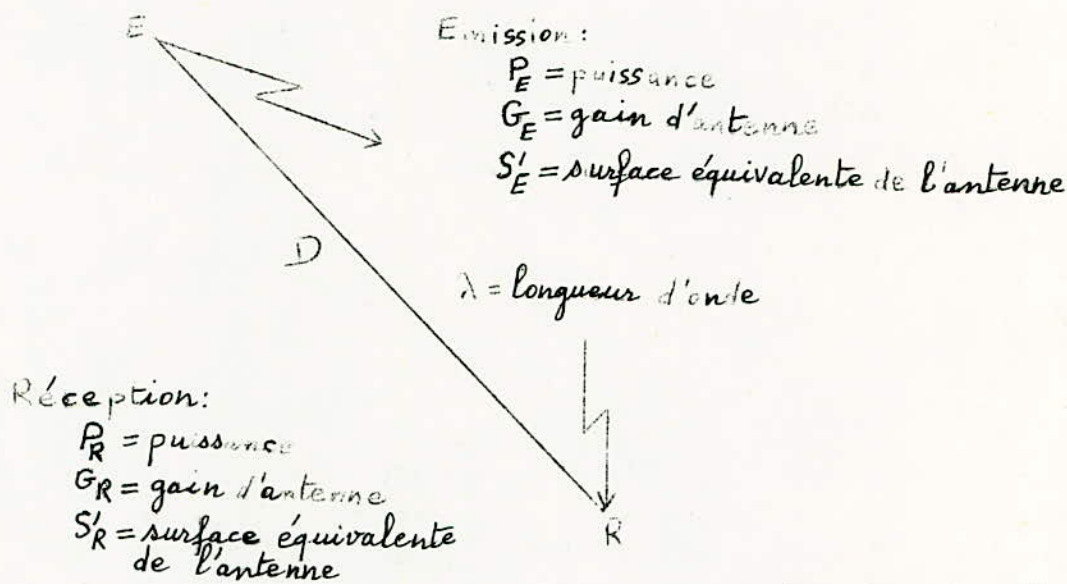 E
Emission:
P_E = puissance
G_E = gain d'antenne
S'_E = surface équivalente de l'antenne
D
λ = longueur d'onde
Réception:
P_R = puissance
G_R = gain d'antenne
S'_R = surface équivalente
de l'antenne
R